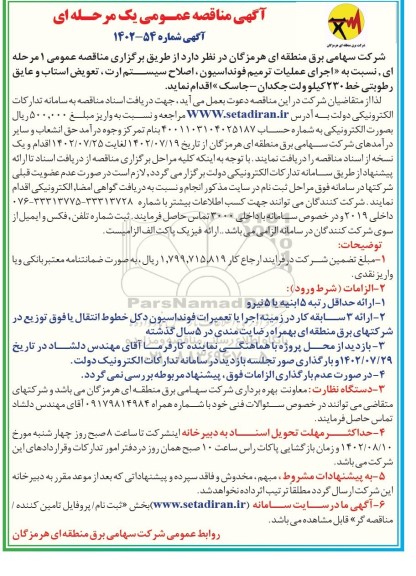 آگهی مناقصه عمومی یک مرحله ای
آگهی شماره ۵۴-۱۴۰۲
شرکت برق منطقه ای هرمزگان
شرکت سهامی برق منطقه ای هرمزگان در نظر دارد از طریق برگزاری مناقصه عمومی ۱ مرحله
ای، نسبت به «اجرای عملیات ترمیم فونداسیون، اصلاح سیستم ارت، تعویض استاب و عایق
رطوبتی خط ۲۳۰ کیلو ولت جکدان - جاسک» اقدام نماید.
لذا از متقاضیان شرکت در این مناقصه دعوت بعمل می آید، جهت دریافت اسناد مناقصه به سامانه تدارکات
الکترونیکی دولت به آدرس WWW.setadiran.ir مراجعه و نسبت به واریز مبلغ ۵۰۰,۰۰۰ ریال
بصورت الکترونیکی به شماره حساب ۴۰۰۱۱۰۳۱۰۴۰۲۵۱۸۷ بنام تمرکز وجوه درآمد حق انشعاب و سایر
درآمدهای شرکت سهامی برق منطقه ای هرمزگان از تاریخ ۱۴۰۲/۰۷/۱۹ لغایت ۱۴۰۲/۰۷/۲۵ اقدام و یک
نسخه از اسناد مناقصه را دریافت نمایند. با توجه به اینکه کلیه مراحل برگزاری مناقصه از دریافت اسناد تا ارائه
پیشنهاد از طریق سامانه تدارکات الکترونیکی دولت برگزار می گردد, لازم است در صورت عدم عضویت قبلی
شرکتها در سامانه فوق مراحل ثبت نام در سایت مذکور انجام و نسبت به دریافت گواهی امضاء الکترونیکی اقدام
نمایند. شرکت کنندگان می توانند جهت کسب اطلاعات بیشتر با شماره ۳۳۳۱۳۷۲۸-۳۳۳۱۳۷۷۵-۰۷۶
داخلی ۲۰۱۹ و در خصوص سامانه با داخلی ۳۰۰۰ تماس حاصل فرمایند. ثبت شماره تلفن، فکس و ایمیل از
سوی شرکت کنندگان در سامانه الزامی می باشد .. ارائه فیزیک پاکت الف الزامیست.
توضیحات:
۱-مبلغ تضمین شرکت در فرایند ارجاع کار ۱,۷۹۹,۷۱۵,۸۱۹ ریال ،به صورت ضمانتنامه معتبر بانکی ویا
واریز نقدی.
۲-الزامات (شرط ورود):
۱-ارائه حداقل رتبه ۵ ابنیه یا ۵ نیرو
۲-ارائه ۳ سابقه کار در زمینه اجرا یا تعمیرات فونداسیون دکل خطوط انتقال یا فوق توزیع در
شرکتهای برق منطقه ای بهمراه رضایت مندی در ۵ سال گذشته
۳-بازدید از محل پروژه با هماهنگی نماینده کارفرما آقای مهندس دلشاد در تاریخ
۱۴۰۲/۰۷/۲۹ و بارگذاری صورتجلسه بازدید در سامانه تدارکات الکترونیک دولت.
۴-در صورت عدم بارگذاری الزامات فوق ، پیشنهاد مربوطه بررسی نمی گردد.
۳-دستگاه نظارت: معاونت بهره برداری شرکت سهامی برق منطقه ای هرمزگان می باشد و شرکتهای
متقاضی می توانند در خصوص سئوالات فنی خود با شماره همراه ۰۹۱۷۹۸۱۴۹۸۴ آقای مهندس دلشاد
تماس حاصل فرمایند.
۴-حداکثر مهلت تحویل اسناد به دبیرخانه اینشرکت تا ساعت ۸ صبح روز چهارشنبه مورخ
۱۴۰۲/۰۸/۱۰ و زمان بازگشایی پاکات راس ساعت ۱۰ صبح همان روز در دفتر امور تدارکات و قراردادهای این
شرکت می باشد.
۵-به پیشنهادات مشروط ، مبهم، مخدوش و فاقد سپرده و پیشنهاداتی که بعد از موعد مقرر به دبیرخانه
این شرکت ارسال گردد مطلقا ترتیب اثر داده نخواهد شد.
۶-آگهی ما در سایت سامانه (www.setadiran.ir) بخش «ثبت نام / پروفایل تامین کننده /
مناقصه گر» قابل مشاهده می باشد.
روابط عمومی شرکت سهامی برق منطقه ای هرمزگان